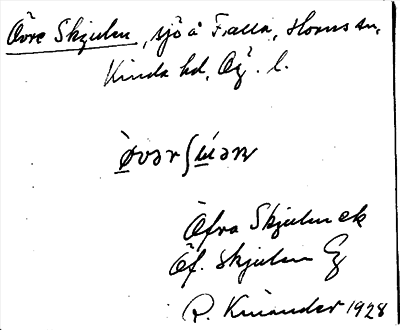 Övre Skjulen, sjö å Fralla, Horns sn,
Kinda hd, Ög. l.
Öfra Skjulen ek
Öf. Skjulen
R. Kinander 1928